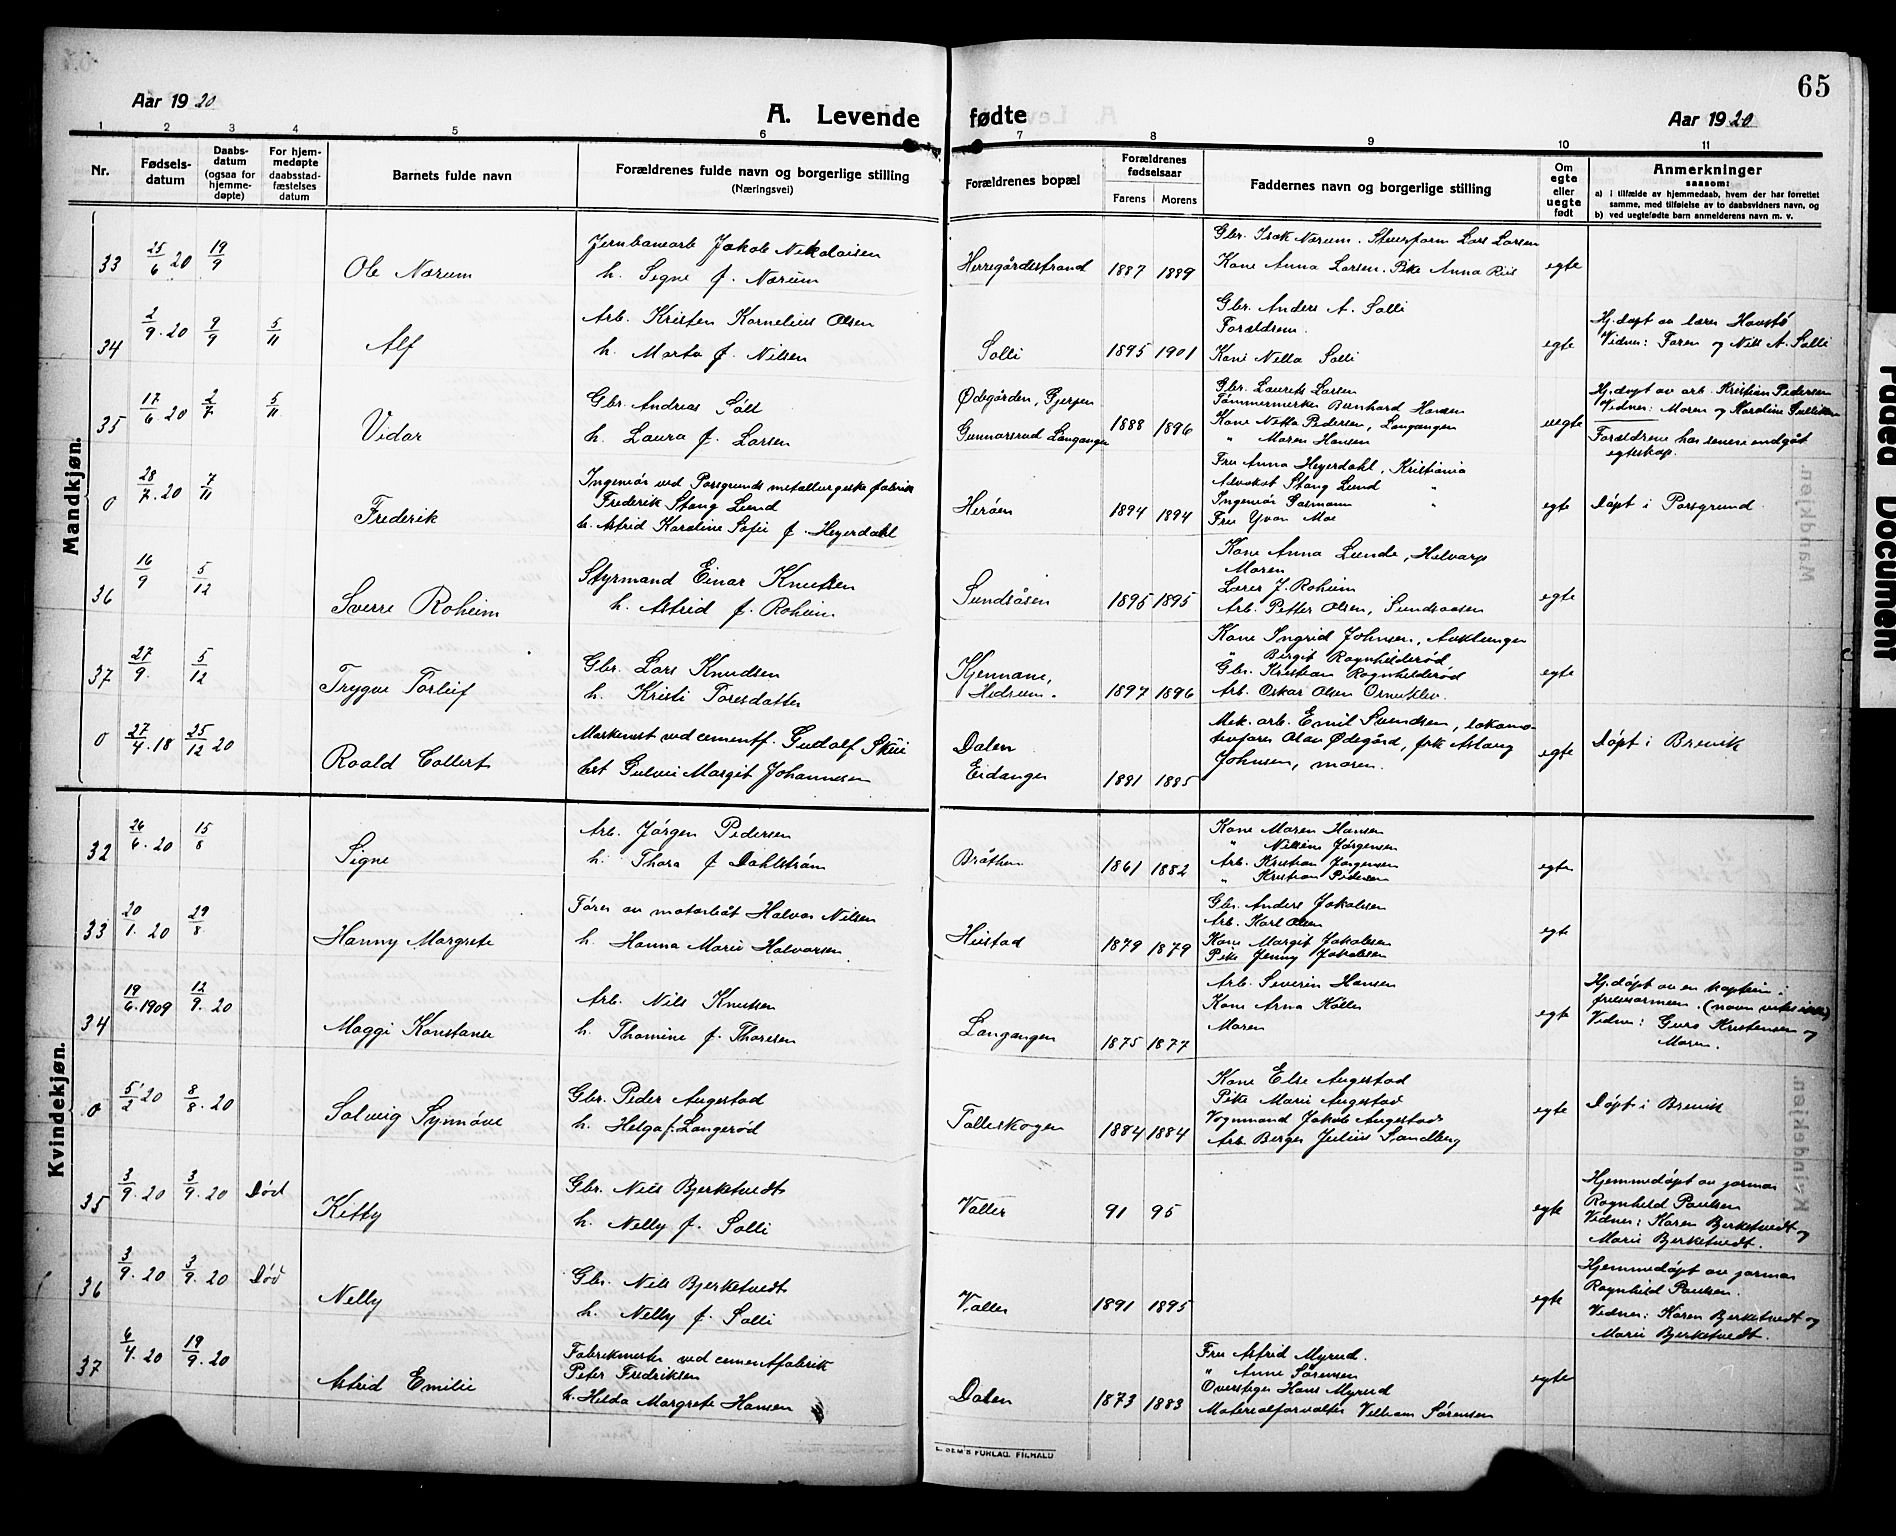 65
Aar 1920
A. Levende fødte
Aar 1920
1 2 3 4 5 6 7 8 9 10 11
Nr.
Fødsels-
datum
Daabs-
datum
(ogsaa for
hjemme-
døpte)
For hjem-
medøpte
daabsstad-
fæstelses
datum
Barnets fulde navn
Forældrenes fulde navn og borgerlige stilling
(Næringsvei)
Forældrenes bopæl
Forældrenes
fødselsaar
Farens Morens
Faddernes navn og borgerlige stilling
Om
egte
eller
uegte
født
Anmerkninger
saasom:
a) i tilfælde av hjemmedaab, hvem der har forrettet
samme, med tilføielse av to daabsvidners navn, og
b) ved uegtefødte barn anmelderens navn m. v.
Mandkjøn.
33 25/6 20 19/9
Ole Nærum
Jernbanearb Jakob Nikolaisen
h. Signe f. Nærum
Herregårdsstrand 1887 1889
Gbr. Isak Nærum. Stuerform Lars Larsen
Kone Anna Larsen. Pike Anna Riis
egte
34 2/9. 20 9/9 5/11
Alf
Arb. Kristen Kornelius Olsen
h. Marta f. Nilsen
Solli 1895 1901
Gbr. Anders A. Solli
Forældrene.
Kone Nella Solli
egte
Hj.døpt av lærer Haustö
Vidner: Faren og Nils A. Solli
35 17/6 20 2/7 5/11
Vidar
Gbr. Andreas Sölt
h. Laura f. Larsen
Ødegården, Gjerpen
Gunnarsrud Langangen 1888 1896
Gbr. Laurits Larsen
Tømmermerker Bernhard Hansen
Kone Netta Pedersen, Langangen
" Maren Hansen
uegte
Hj.døpt av arb. Kristian Pedersen
Vidner: Moren og Karoline
Forældrene har senere indgåt
egteskap.
0 28/7. 20 7/11
Frederik
Ingeniør ved Porsgrunds metallurgiske fabrik
Frederik Stang Lund
h. Astrid Karoline Sofie f. Heyerdahl
Herøen 1894 1894
Fru Anna Heyerdahl, Kristiania
Advokat Stang Lund "
Ingeniør "
Fru Yvon Moe
egte
Døpt i Porsgrund.
36 16/9 5/12
Sverre Roheim
Styrmand Einar Knutsen
h. Astrid f. Roheim
Sundsåsen 1895 1895
Kone Anna Lunde, Helvarp
Moren
Lærer J. Roheim
Arb. Petter Olsen, Sundsaasen
egte
37 27/9. 5/12
Trygve Torleif
Gbr. Lars Knudsen
h. Kristi Toresdatter
Kjennane,
Hedrum. 1897 1896
Kone Ingrid Johnsen, Auklungen
" Birgit Rognhilderød
Gbr. Kristian Rognhilderød
Arb. Oskar Olsen Ornuklev.
egte
0 27/4. 18 25/12 20
Roald Collert
Murkemst ved cementf. Gudolf Skii
hst Gulvei Margit Johannesen
Dalen
Eidanger 1881 1885
Mek. arb. Emil Svendsen, lokomo-
tivfører Olav Ødegård, frk Aslaug
Johnsen, moren.
egte
Døpt i Brevik
Kvindekjøn.
32 26/6. 20 15/8
Signe
Arb. Jørgen Pedersen
h. Thora f. Dahlstrøm
Bråthen 1861 1882
Kone Maren Hansen
" Nilsine Jørgensen
Arb. Kristian Jørgensen
" Kristian Pedersen
egte
33 20/1. 20 29/8.
Hanny Margrete
Fører av motorbåt Halvor Nilsen
h. Hanna Marie Halvorsen.
Heistad 1879 1879
Gbr. Anders Jakobsen
Arb. Karl Olsen
Kone Margit Jakobsen
Pike Jenny Jakobsen
egte
34 19/6. 1909 12/9. 20
Maggi Konstanse
Arb. Nils Knutsen
h. Thomine f. Thoresen
Langangen 1875 1877
Arb. Severin Hansen
Kone Arna Kåsen
Moren
egte
Hj.døpt av en kaptein i
frelsesarmeen. (navn vites ikke)
Vidner: Guro Kristensen og
Moren.
0 5/2 20 8/8. 20
Solveig Synnöve
Gbr. Peder Augestad
h. Helga f. Langerød
Tollerskogen 1884 1884
Kone Else Augestad
Pike Marie Augestad
Vognmand Jakob Augestad
Arb. Berger Julius Sandberg
egte
Døpt i Brevik
35 3/9. 20 3/9. 20 Død
Kitty
Gbr. Nils Bjerketvedt
h. Nelly f. Solli
Valler 91 95
egte
Hjemmedøpt av jormor
Ragnhild Paulsen
Vidner: Karen Bjerketvedt og
Marie Bjerketvedt.
36 3/9. 20 3/9. 20 Død
Nelly
Gbr. Nils Bjerketvedt
h. Nelly f. Solli
Valler 1891 1895
egte
Hjemmedøpt av jormor
Ragnhild Paulsen.
Vidner: Karen Bjerketvedt og
Marie Bjerketvedt.
37 6/4. 20 19/9. 20
Astrid Emilie
Fabrikmester ved cementfabrik
Peter Fredriksen
h. Hilda Margrete Hansen
Dalen 1873 1883
Fru Astrid Myrud.
" Anne Sørensen
Overstiger Hans Myrud
Materialforvalter Vilham Sørensen
egte
E. SEM'S FORLAG. FR.HALD
Faded Document